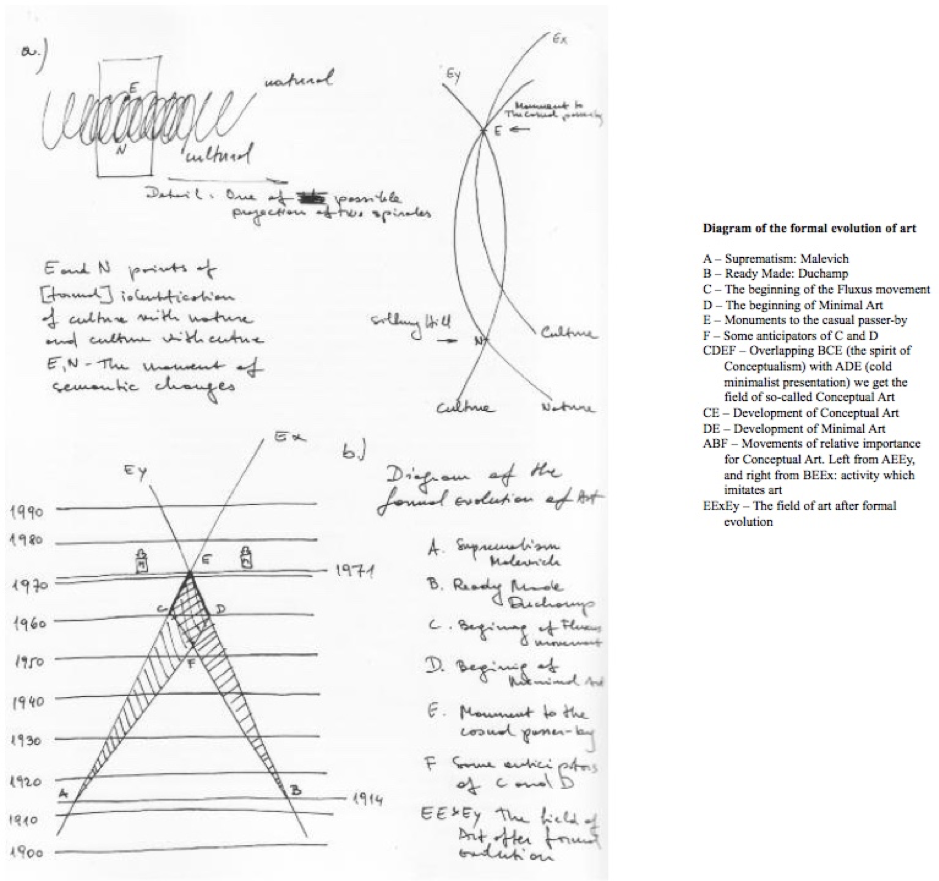 a.)
natural
E
N
cultural
Detail. One of possible
projection of two spirales
E and N points of
[formal] identification
of culture with nature
and culture with
E, N - The moment of
semantic changes
Ex
Ey
Monument to
The casual passer-by
E ←
Hill
→ N
Culture
Culture
Nature
b.)
Diagram of the
formal evolution of Art
Ey
Ex
1990
1980
E
1971
1970
C
D
1960
F
1950
1940
1930
1920
A
B
1914
1910
1900
A. Suprematism
Malevich
B. Ready Made
Duchamp
C. of Fluxus
movement
D. of
Minimal Art
E. Monument to the
casual passer-by
F Some anticipators
of C and D
EExEy The field of
Art after formal
evolution
Diagram of the formal evolution of art
A – Suprematism: Malevich
B – Ready Made: Duchamp
C – The beginning of the Fluxus movement
D – The beginning of Minimal Art
E – Monuments to the casual passer-by
F – Some anticipators of C and D
CDEF – Overlapping BCE (the spirit of
Conceptualism) with ADE (cold
minimalist presentation) we get the
field of so-called Conceptual Art
CE – Development of Conceptual Art
DE – Development of Minimal Art
ABF – Movements of relative importance
for Conceptual Art. Left from AEEy,
and right from BEEx: activity which
imitates art
EExEy – The field of art after formal
evolution